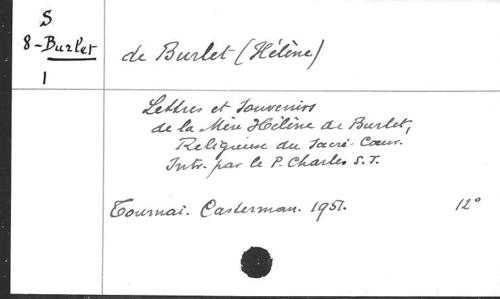 S
8-Burlet
1
de Burlet (Hélène)
Lettres et Souvenirs
de la Mère Hélène de Burlet,
Religieuse du Sacré-Cœur.
Intr. par le P. Charles S.J.
Tournai. Casterman. 1951. 12°